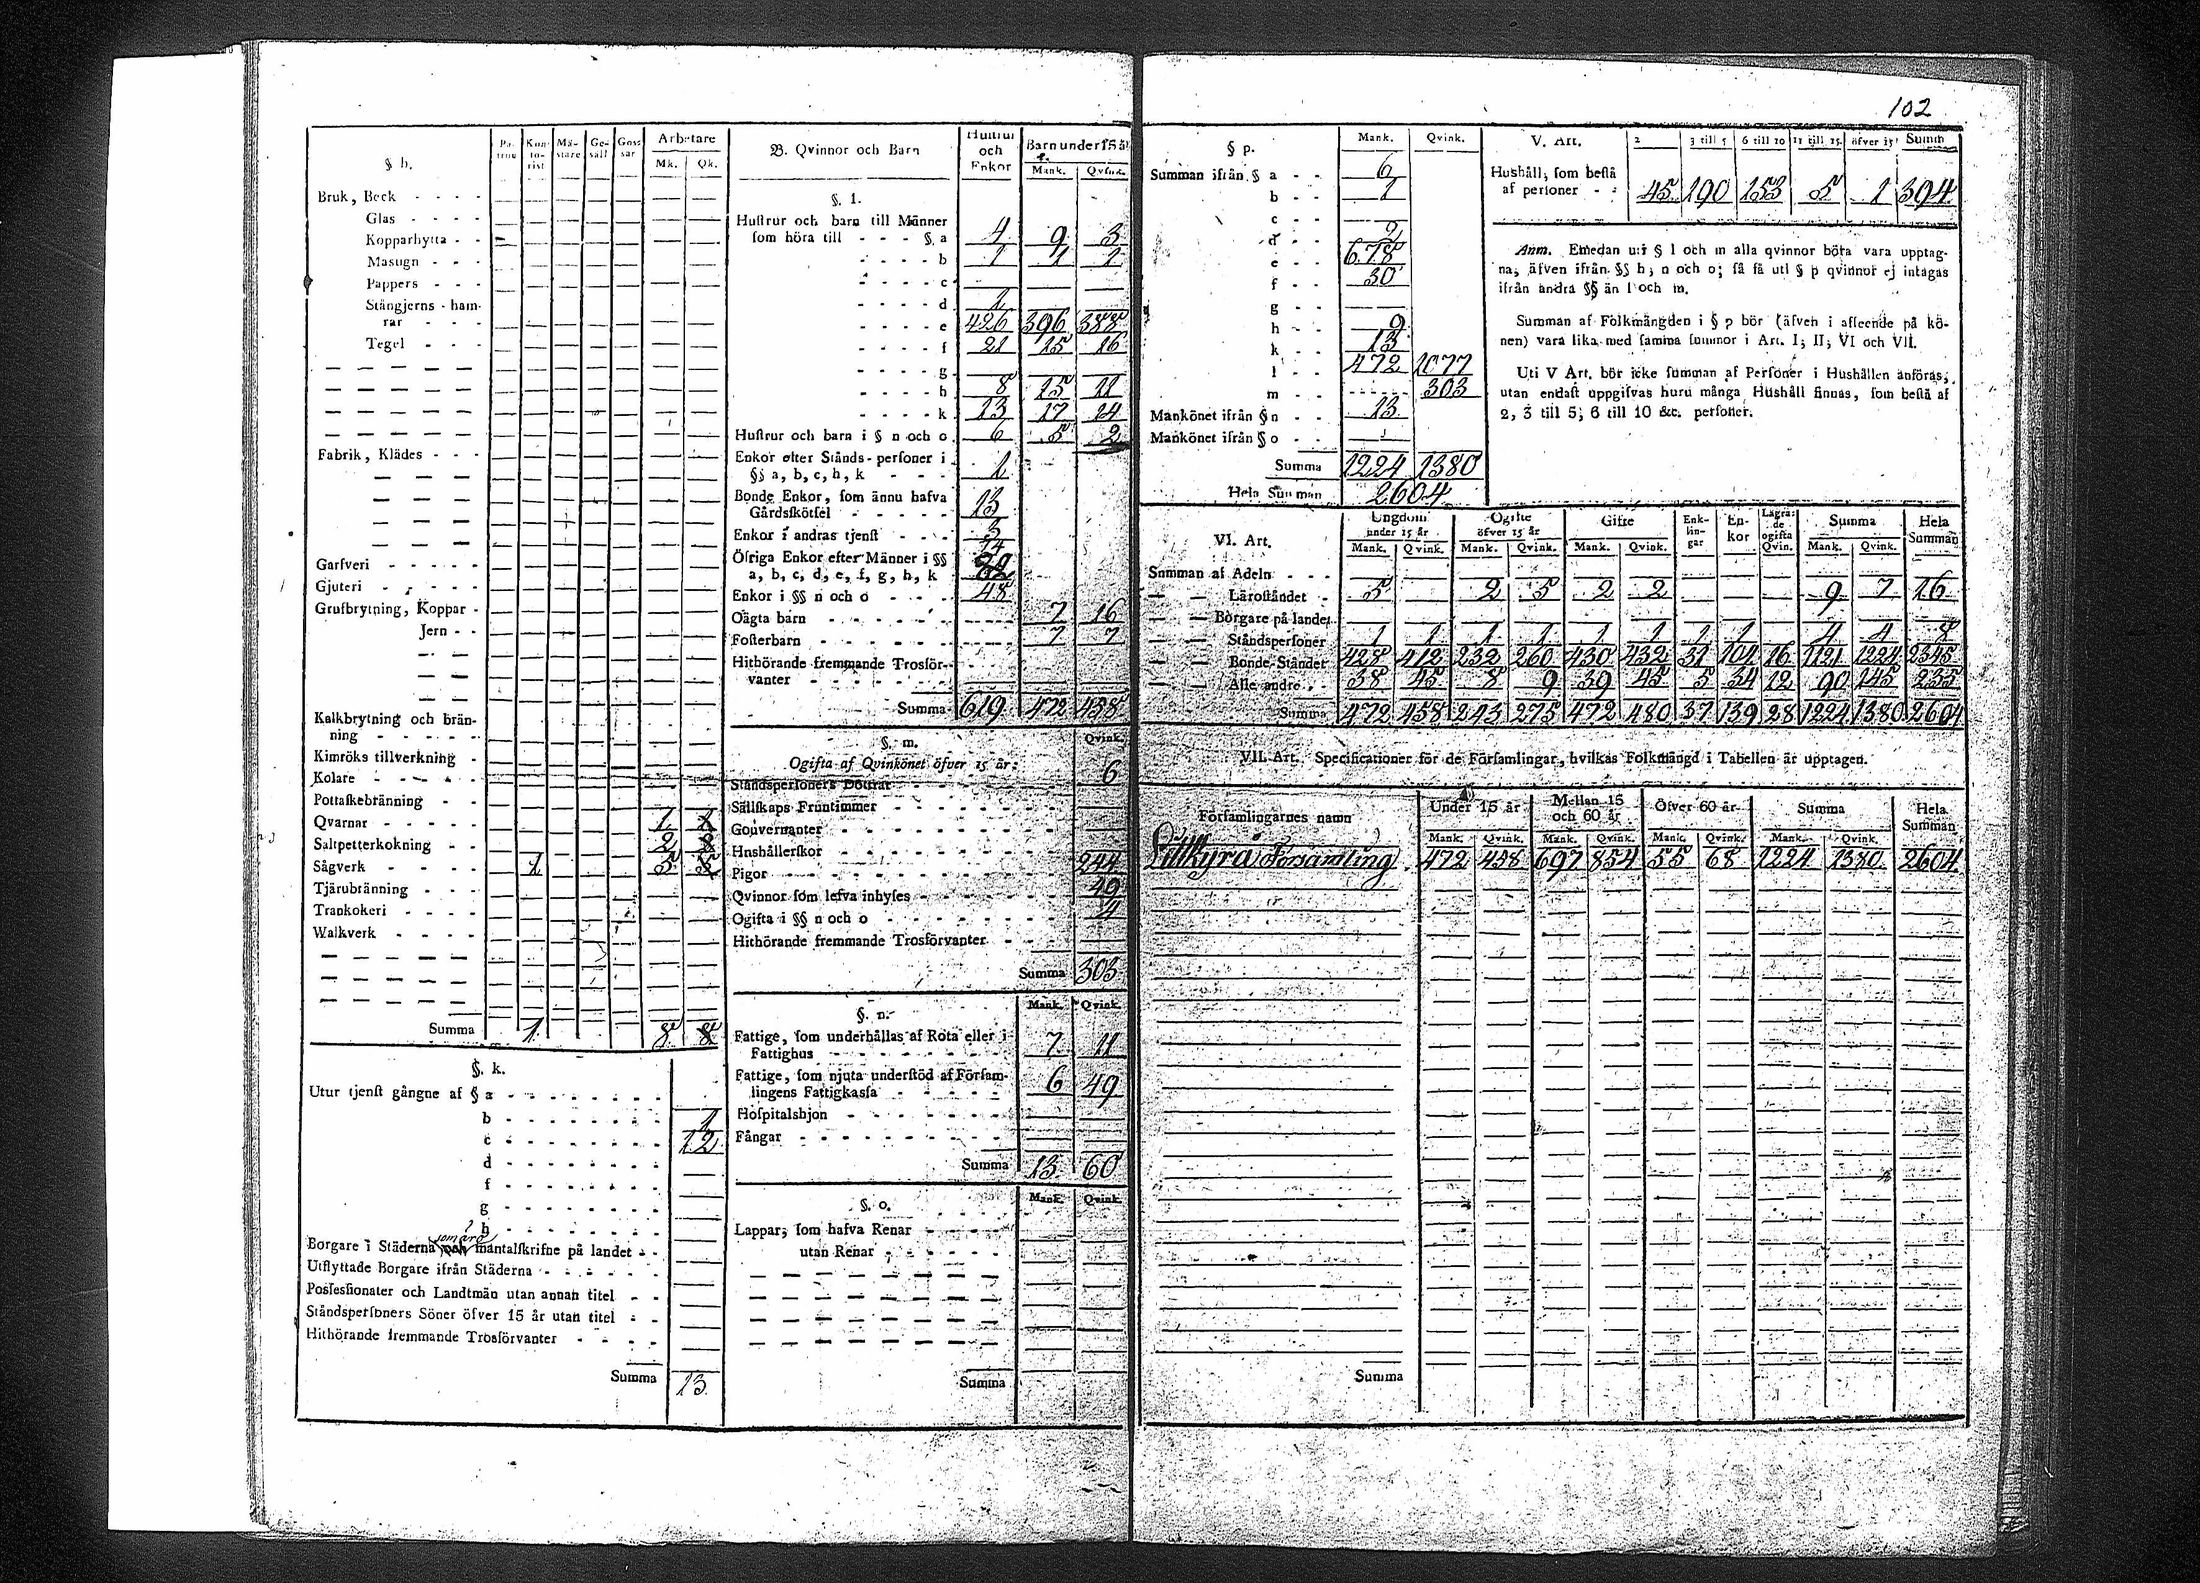 102
§ h.
Patron Kontorist Mästare Gesäll Gossar Arbetare
Mk. Qk.
Bruk, Beck
Glas
Kopparhytta
Masugn
Pappers
Stångjerns-hamrar
Tegel
Fabrik, Klädes
Garfveri
Gjuteri
Grufbrytning, Koppar
Jern
Kalkbrytning och bränning
Kimröks tillverkning
Kolare
Pottaskebränning
Qvarnar 1
Saltpetterkokning 2
Sågverk 1 5
Tjärubränning
Trankokeri
Walkverk
Summa 1 8 8
§. k.
Utur tjenst gångne af § a
b 1
c 12
d
f
g
h
Borgare i Städerna som äro mantalskrifne på landet
Utflyttade Borgare ifrån Städerna
Possessionater och Landtmän utan annan titel
Ståndspersoners Söner öfver 15 år utan titel
Hithörande fremmande Trosförvanter
Summa 13
B. Qvinnor och Barn
Hustrur och Enkor
Barn under 15 år
Mank. Qvink.
§. l.
Hustrur och barn till Männer
som höra till §. a 4 9 3
b 1 1 1
c
d 1
e 426 396 388
f 21 15 16
g
h 8 15 11
k 13 17 14
Hustrur och barn i § n och o 6 5 2
Enkor efter Stånds-personer i
§§ a, b, c, h, k 1
Bonde Enkor, som ännu hafva
Gårdsskötsel 13
Enkor i andras tjenst 3
Öfriga Enkor efter Männer i §§
a, b, c, d, e, f, g, h, k
Enkor i §§ n och o 48
Oägta barn 7 16
Fosterbarn 7 7
Hithörande fremmande Trosförvanter
Summa 619 472 458
§. m.
Ogifta af Qvinkönet öfver 15 år: Qvink.
Ståndspersoners Döttrar 6
Sällskaps Fruntimmer
Gouvernanter
Hushållerskor
Pigor 244
Qvinnor som lefva inhyses 49
Ogifta i §§ n och o 4
Hithörande fremmande Trosförvanter
Summa 303
§. n.
Mank. Qvink.
Fattige, som underhållas af Rota eller i
Fattighus 7 11
Fattige, som njuta understöd af Församlingens Fattigkassa 6 49
Hospitalshjon
Fångar
Summa 13 60
§. o.
Mank. Qvink.
Lappar, som hafva Renar
utan Renar
Summa
§ p.
Mank. Qvink.
Summan ifrån § a 6
b 1
c
d 2
e 678
f 30
g
h 9
k 13
l 472 1077
m 303
Mankönet ifrån § n 13
Mankönet ifrån § o
Summa 1224 1380
Hela Summan 2604
V. Art. 2 3 till 5 6 till 10 11 till 15 öfver 15 Summ
Hushåll, som bestå
af personer 45 190 153 5 1 394
Anm. Emedan uti § l och m alla qvinnor böra vara upptagna, äfven ifrån §§ h, n och o; så få uti § p qvinnor ej intagas
ifrån andra §§ än l och m.
Summan af Folkmängden i § p bör (äfven i afseende på könen) vara lika med samma summor i Art. I, II, VI och VII.
Uti V Art. bör icke summan af Personer i Hushållen anföras,
utan endast uppgifvas huru många Hushåll finnas, som bestå af
2, 3 till 5, 6 till 10 &c. personer.
VI. Art.
Ungdom under 15 år Ogifte öfver 15 år Gifte Enklingar Enkor Lägrade ogifta Qvin. Summa Hela Summan
Mank. Qvink. Mank. Qvink. Mank. Qvink. Mank. Qvink.
Summan af Adeln
Läroståndet 5 2 5 2 2 9 7 16
Borgare på landet
Ståndspersoner 1 1 1 1 1 1 1 1 4 4 8
Bonde Ståndet 428 412 232 260 430 432 31 104 16 1121 1224 2345
Alle andre 38 45 8 9 39 45 5 34 12 90 145 235
Summa 472 458 243 275 472 480 37 139 28 1224 1380 2604
VII. Art. Specificationer för de Församlingar, hvilkas Folkmängd i Tabellen är upptagen.
Församlingarnes namn Under 15 år Mellan 15 och 60 år Öfver 60 år Summa Hela Summan
Mank. Qvink. Mank. Qvink. Mank. Qvink. Mank. Qvink.
Lillkyro Församling 472 458 697 854 55 68 1224 1380 2604
Summa